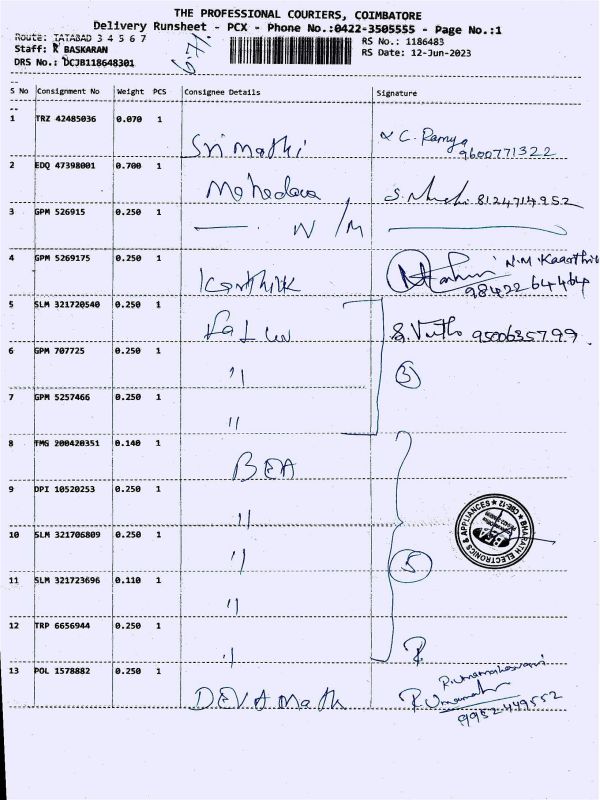 THE PROFESSIONAL COURIERS, COIMBATORE
Delivery Runsheet - PCX - Phone No.:0422-3505555 - Page No.:1
Route: TATABAD 3 4 5 6 7
RS No.: 1186483
Staff: R BASKARAN
RS Date: 12-Jun-2023
DRS No.: DCJB118648301
S No Consignment No Weight PCS Consignee Details Signature
1 TRZ 42485036 0.070 1 Srimathi C. Ramya 9600771322
2 EDQ 47398001 0.700 1 Mahadeva 8124714952
3 GPM 526915 0.250 1 N/M
4 GPM 5269175 0.250 1 Karthick N.M. Kaarthik 98422 64464
5 SLM 321720540 0.250 1 9500635799
6 GPM 707725 0.250 1 " 3
7 GPM 5257466 0.250 1 "
8 TMG 200420351 0.140 1 BEA
9 DPI 10520253 0.250 1 "
10 SLM 321706809 0.250 1 " 5
11 SLM 321723696 0.110 1 "
12 TRP 6656944 0.250 1 "
13 POL 1578882 0.250 1 DEVAMath R. Umamaheswari
9952449552
BHARATH ELECTRONICS & APPLIANCES ★ CBE-12 ★